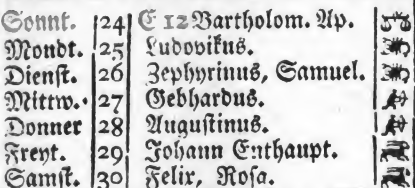 Sonnt. 24 E 12 Bartholom. Ap.
Mondt. 25 Ludovikus.
Dienst. 26 Zephyrinus, Samuel.
Mittw. 27 Gebhardus.
Donner 28 Augustinus.
Freyt. 29 Johann Enthaupt.
Samst. 30 Felix, Rosa.